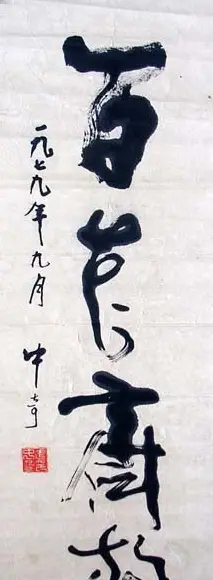 百花齊放
一九七九年九月